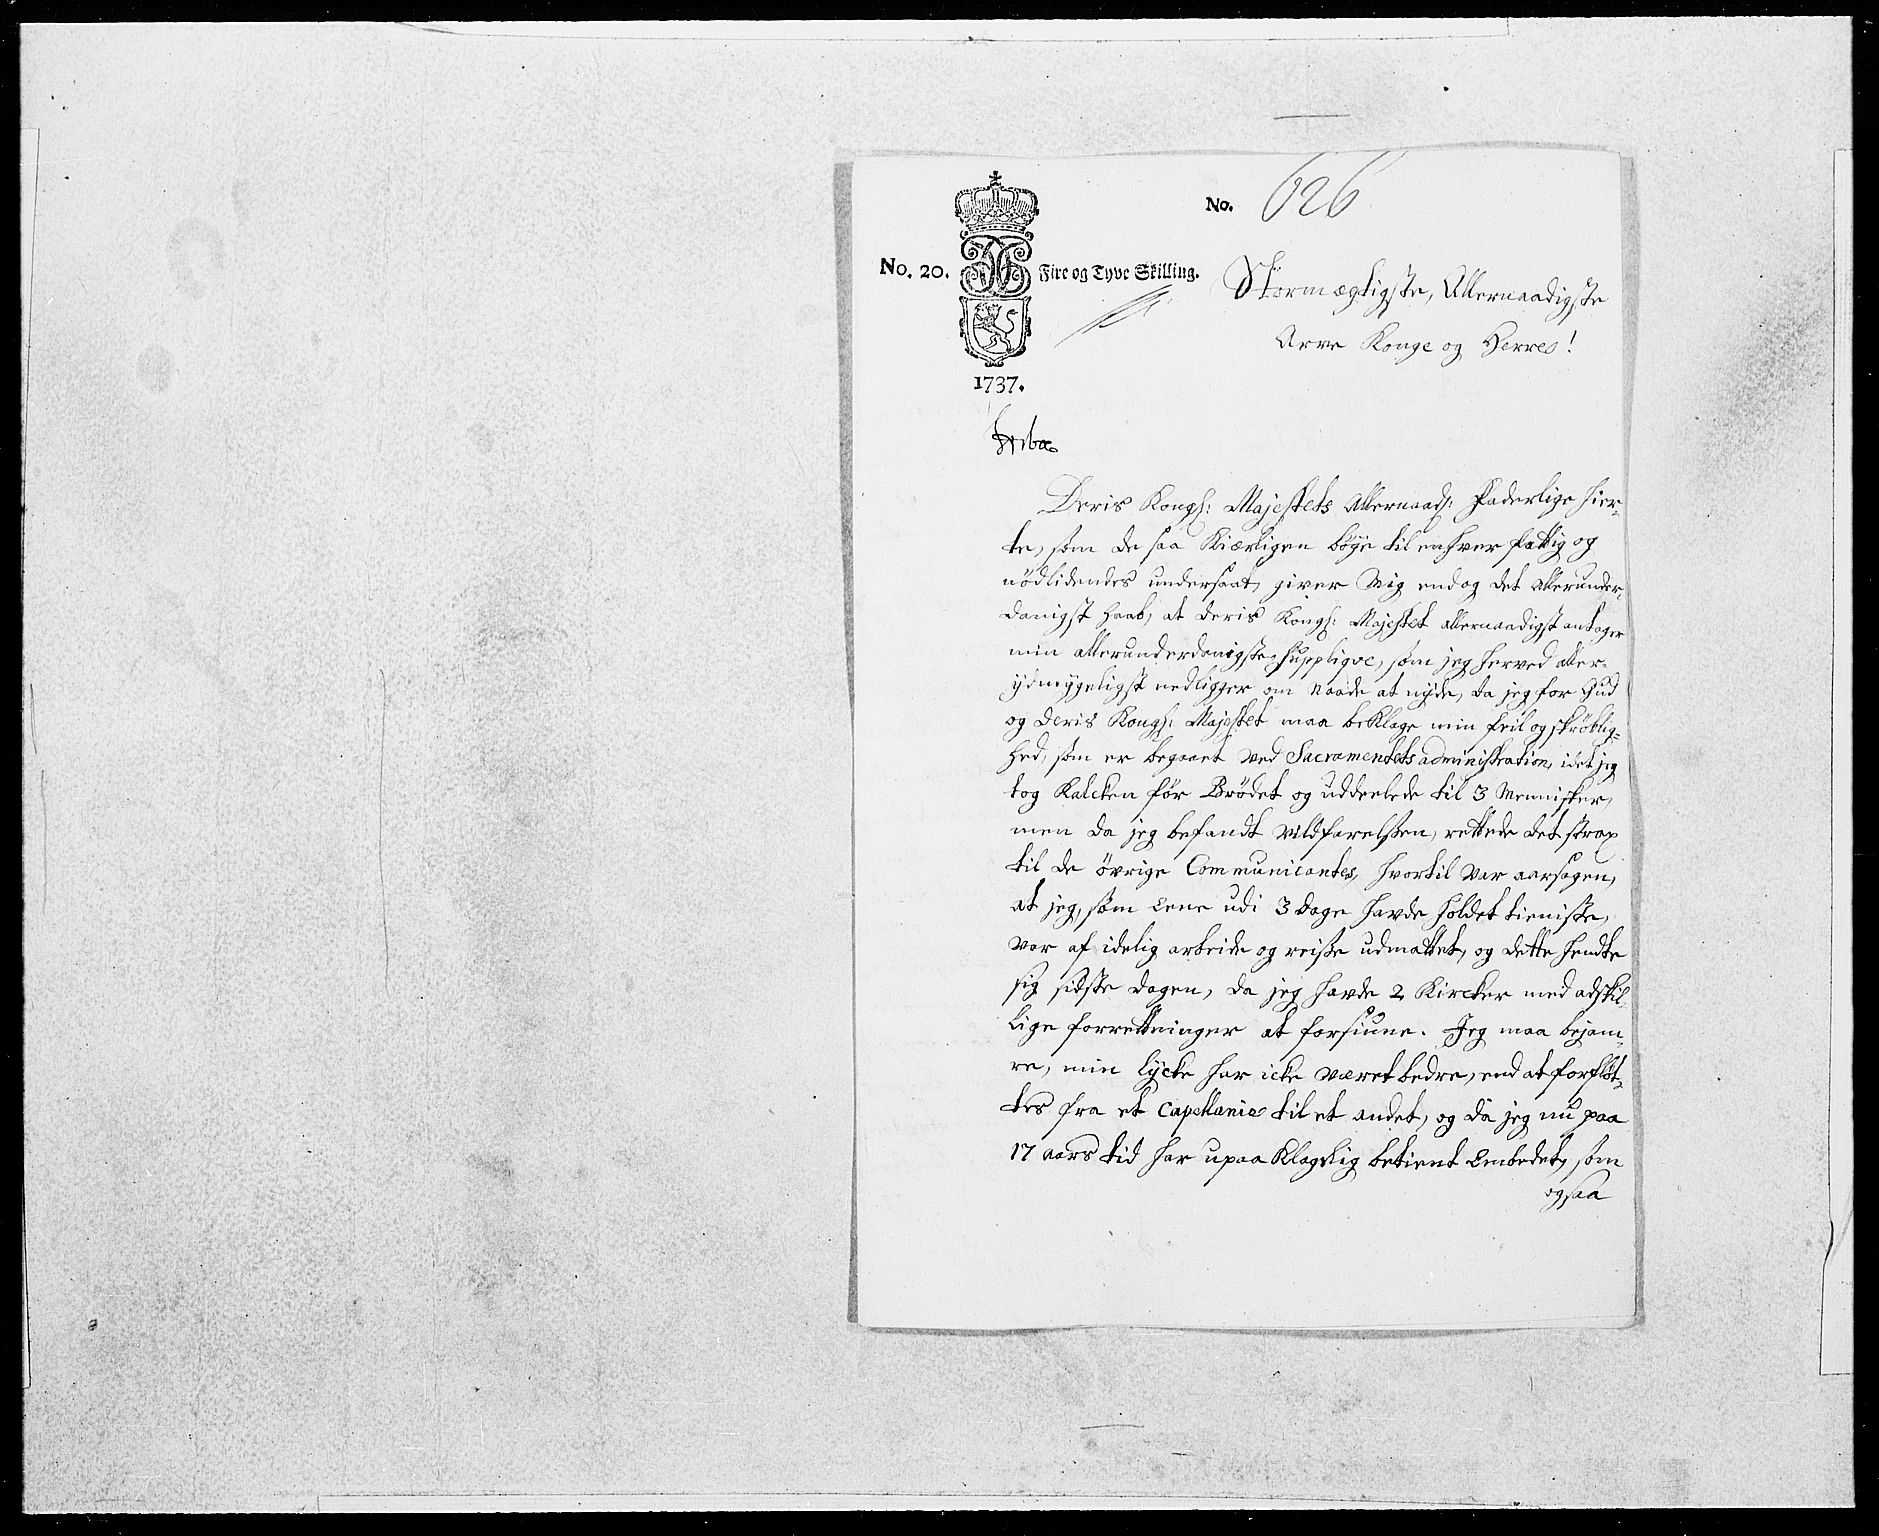 No. 626
No. 20. Fire og Tyve Skilling.
Stormægtigste, Allernaadigste
Arve Konge og Herre!
1737.
Deris Kongl: Majestets Allernaad: Faderlige Hier-
te, som de saa Kiærligen böye til enhver fattig og
nödlidendes undersaat, giver Mig endog det allerunder-
danigst Haab, at Deris Kongl: Majestet allernaadigst antager
min allerunderdanigste Suppliqve, som jeg herved aller-
ÿdmygeligst nedligger om Naade at nyde, da jeg for Gud
og Deris Kongl: Majestet maa beklage min feil og skröblig-
hed, som er begaaet ved Sacramentets administration, idet jeg
tog Kalcken för Brödet og uddeelede til 3 Mennisker,
men da jeg befandt vildfarelsen, rettede det strax
til de övrige Communicantes, hvortil var aarsagen,
at jeg, som Eene udi 3 Dage havde holdet tieniste,
var af idelig arbeide og reise udmattet, og dette hendte
sig sidste dagen, da jeg havde 2 Kircker med adskil-
lige forrettninger at forsiune. Jeg maa bejam-
re, min lycke har icke været bedre, end at forflöt-
tes fra et Capellanie til et andet, og da jeg nu paa
17 aars tid har upaaklagelig betient Embedet, som
ogsaa